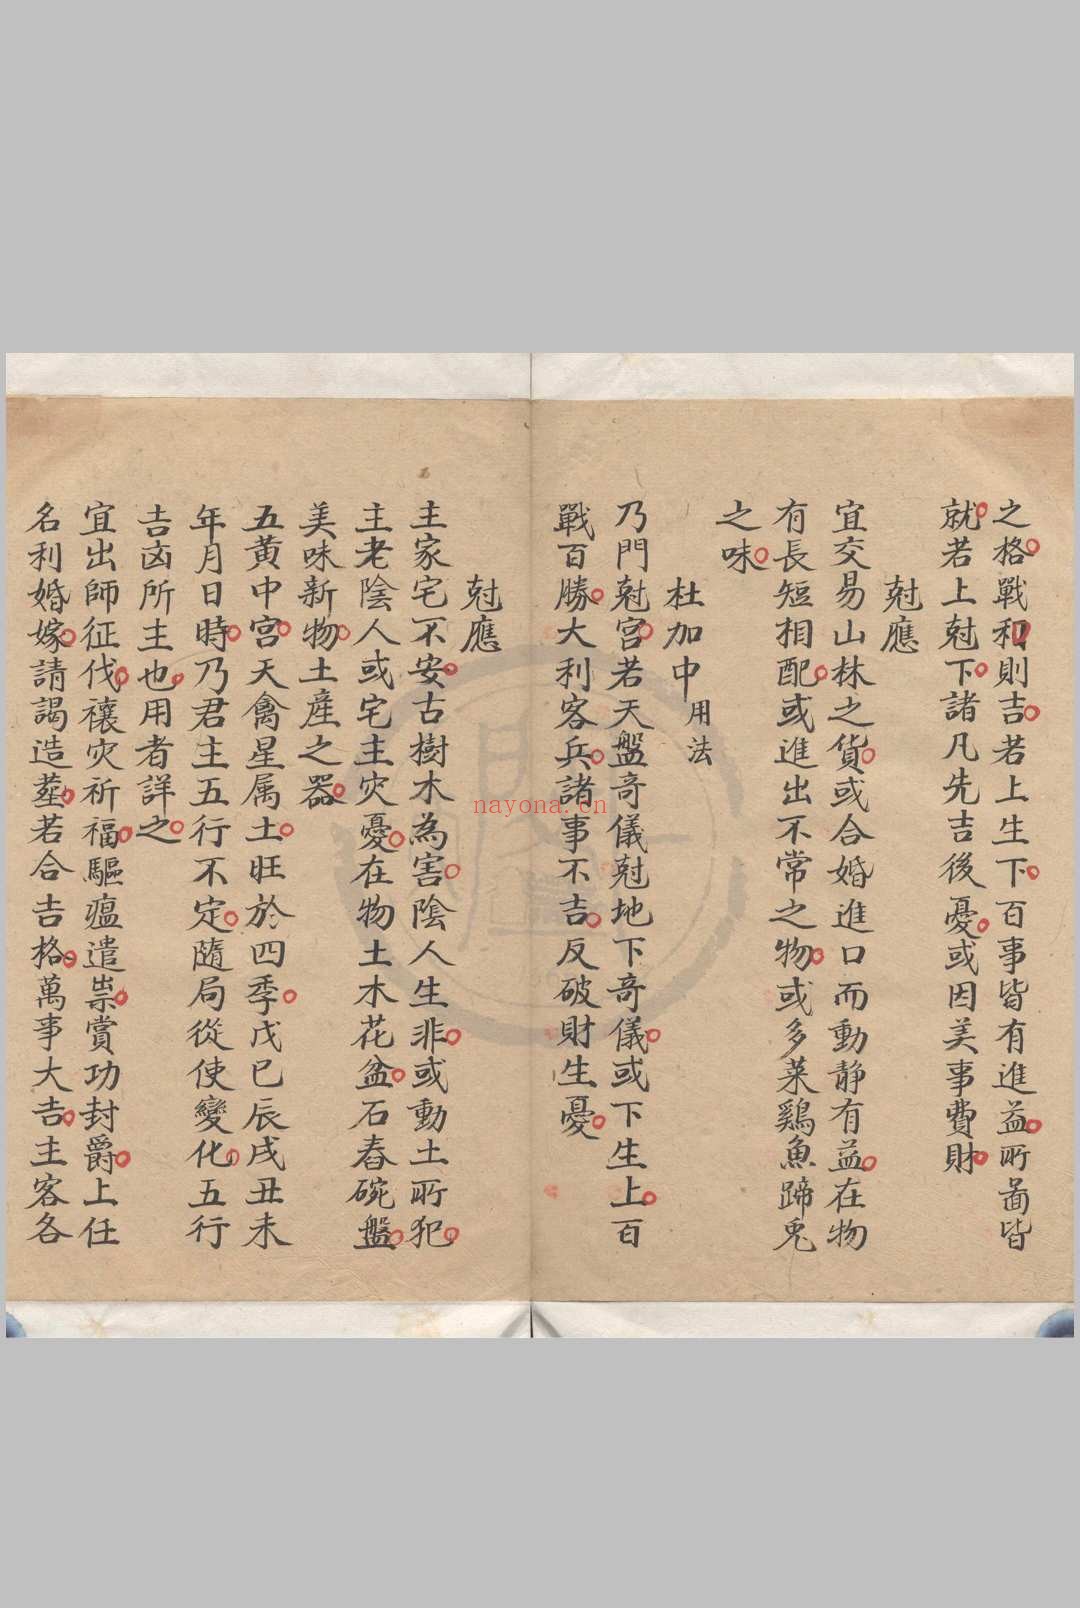 之格戰和則吉若上生下百事皆有進益所啚皆
就若上尅下諸凡先吉後憂或因美事費財
尅應
宜交易山林之貨或合婚進口而動靜有益在物
有長短相配或進出不常之物或多菜鷄魚蹄兎
之味
杜加中用法
乃門尅宮若天盤竒儀尅地下竒儀或下生上百
戰百勝大利客兵諸事不吉反破財生憂
尅應
主家宅不安古樹木為害陰人生非或動土所犯
主老陰人或宅主灾憂在物土木花盆石舂碗盤
美味新物土産之器
五黃中宮天禽星属土旺於四季戊巳辰戌丑未
年月日時乃君主五行不定隨局從使變化五行
吉凶所主也用者詳之
宜出師征伐禳灾祈福驅瘟遣祟賞功封爵上任
名利婚嫁請謁造塟若合吉格萬事大吉主客各
nayona.cn